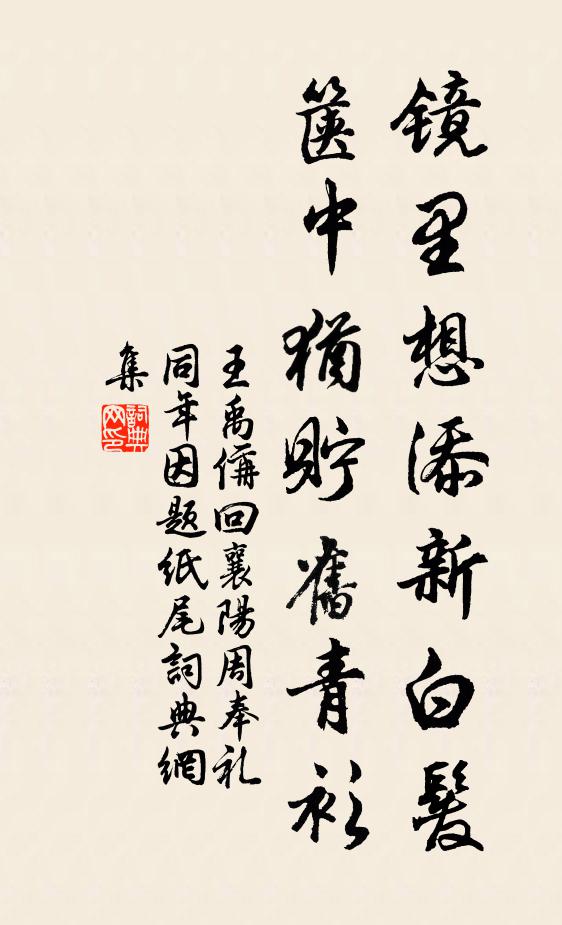 镜里想添新白髮
箧中猶貯舊青衫
王禹偁回襄陽周奉礼
同年因题纸尾詞典網
集
詞典
网印